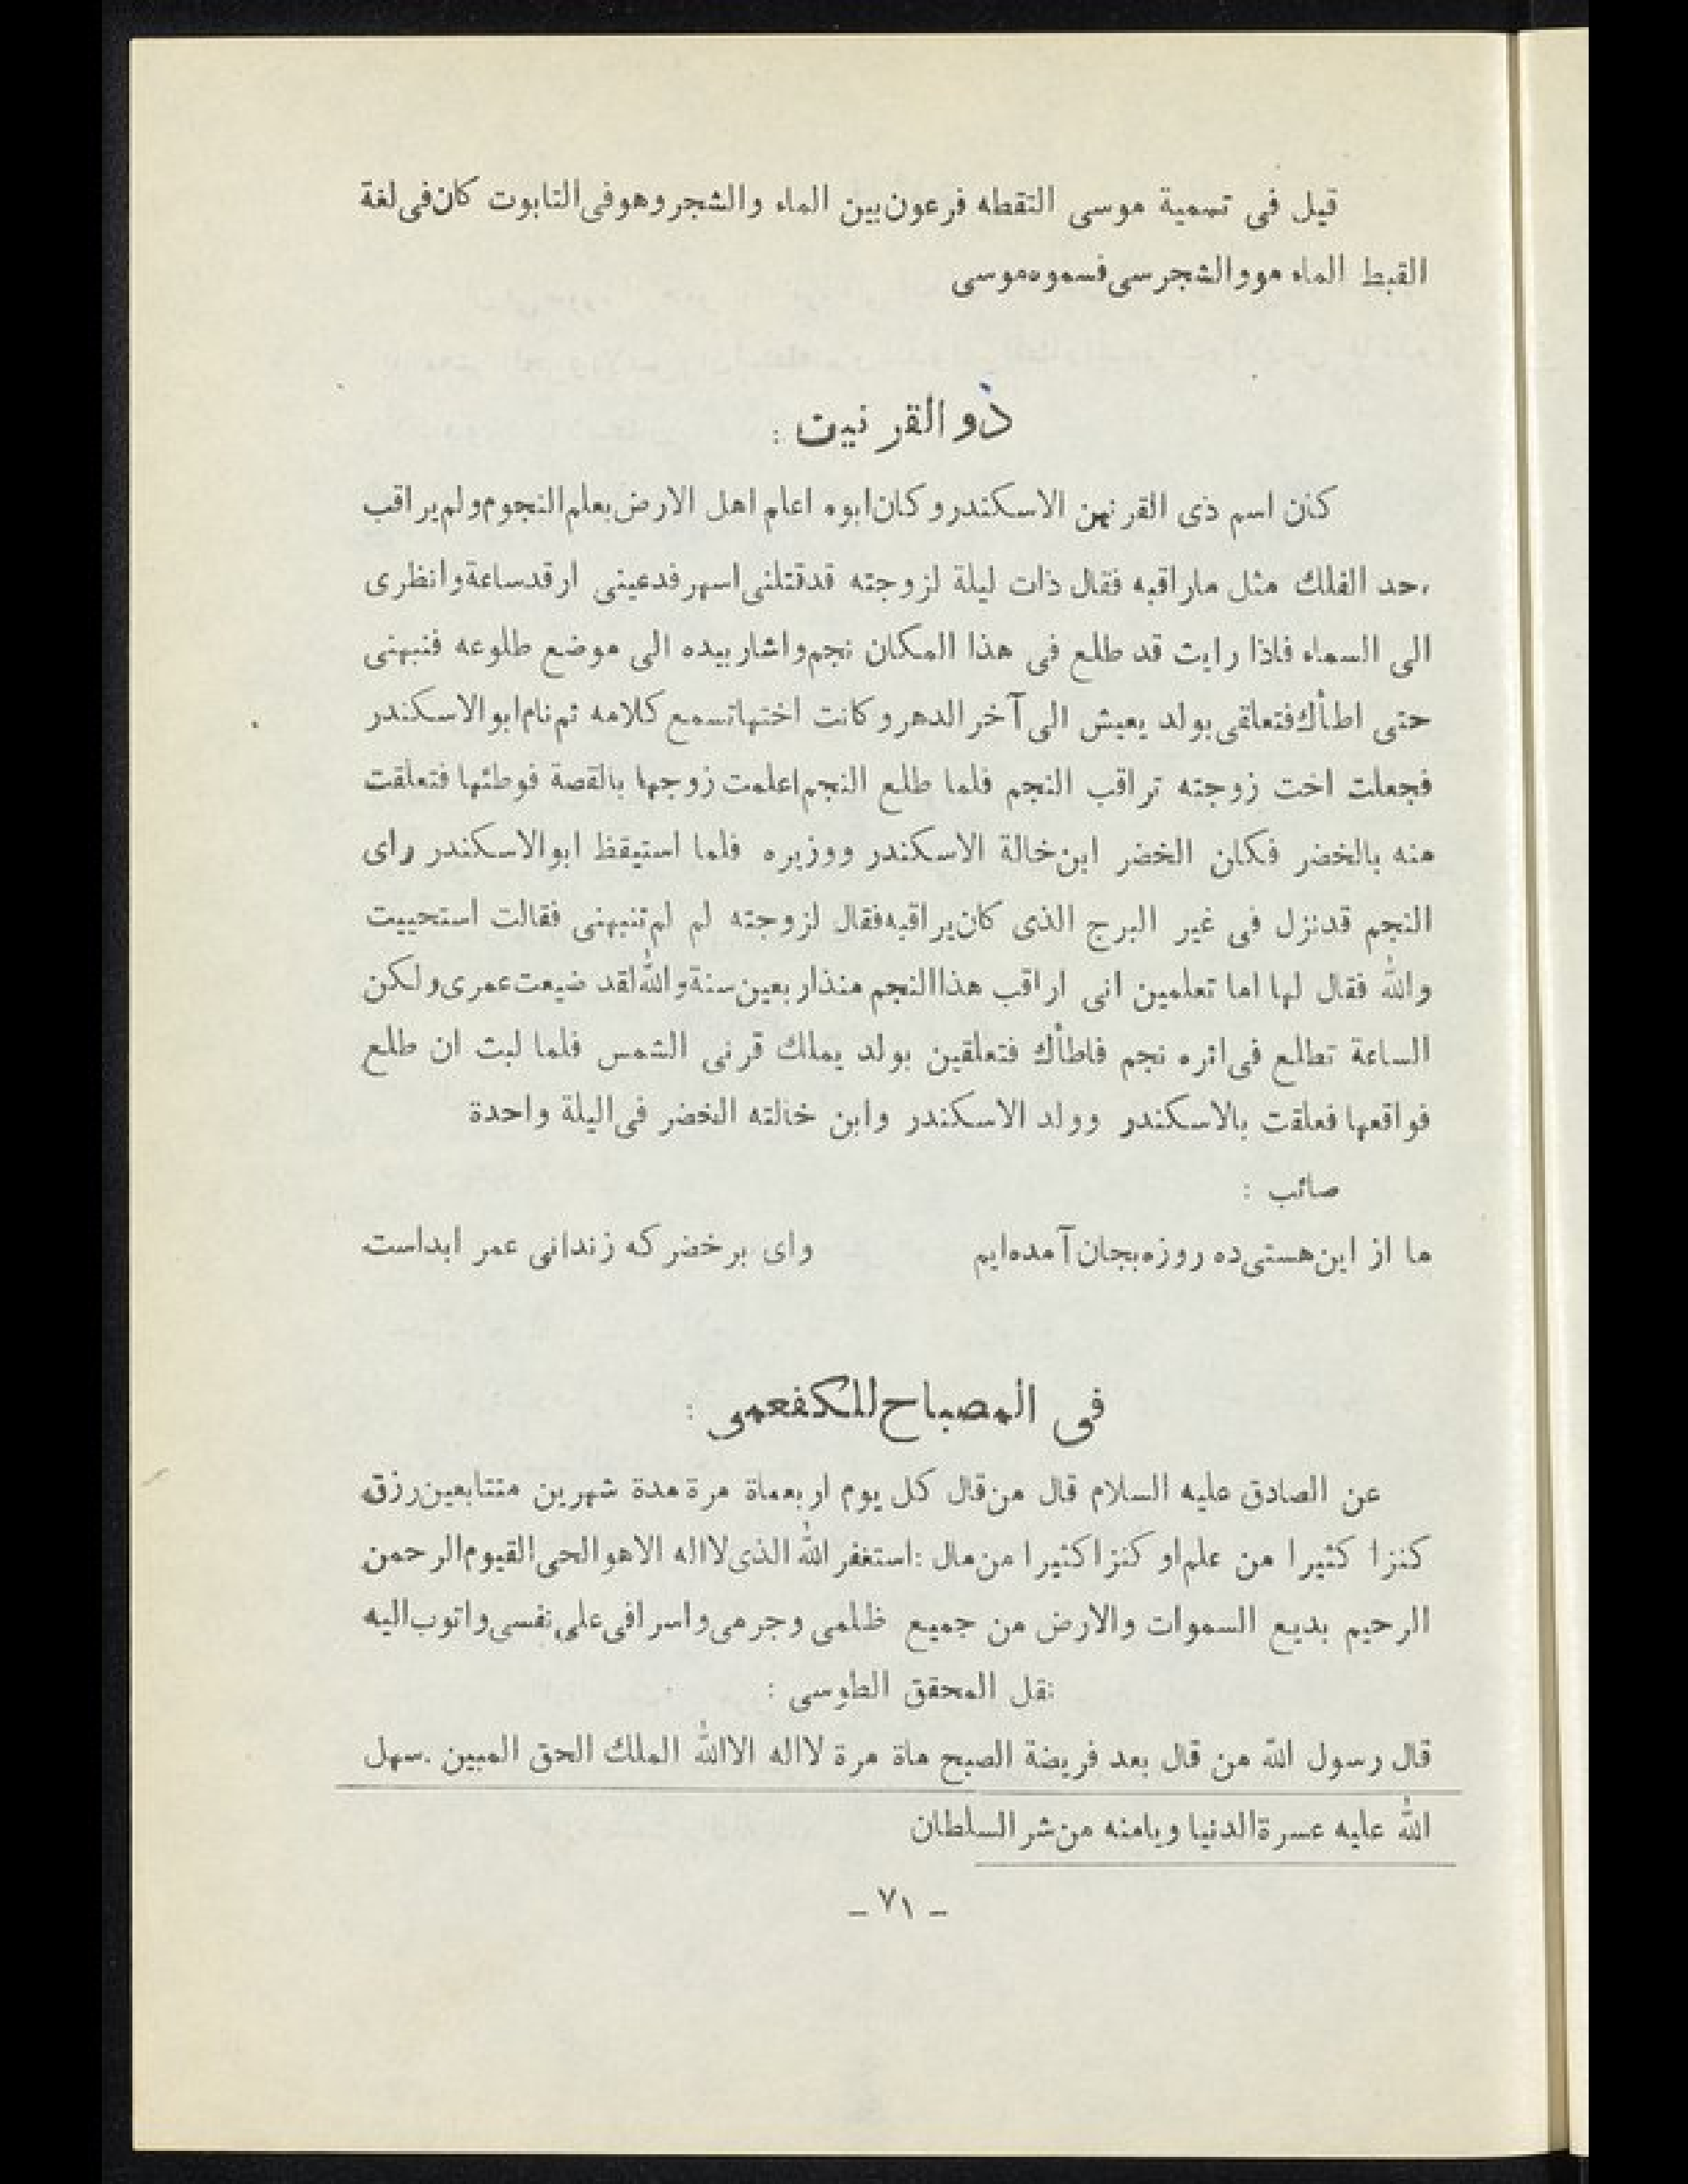 قيل فى تسمية موسى التقطه فرعون بين الماء والشجر وهو فى التابوت كان فى لغة
القبط الماء مو والشجر سى فسموه موسى
ذو القرنين :
كان اسم ذى القرنين الاسكندر وكان ابوه اعلم اهل الارض بعلم النجوم ولم يراقب
احد الفلك مثل ماراقبه فقال ذات ليلة لزوجته قدقتلنى اسهر فدعينى ارقد ساعة وانظرى
الى السماء فاذا رايت قد طلع فى هذا المكان نجم واشار بيده الى موضع طلوعه فنبهنى
حتى اطأك فتعلقى بولد يعيش الى آخر الدهر وكانت اختها تسمع كلامه ثم نام ابو الاسكندر
فجعلت اخت زوجته تراقب النجم فلما طلع النجم اعلمت زوجها بالقصة فوطئها فتعلقت
منه بالخضر فكان الخضر ابن خالة الاسكندر ووزيره فلما استيقظ ابو الاسكندر راى
النجم قدنزل فى غير البرج الذى كان يراقبه فقال لزوجته لم لم تنبهنى فقالت استحييت
والله فقال لها اما تعلمين انى اراقب هذا النجم منذ اربعين سنة والله لقد ضيعت عمرى ولكن
الساعة تطلع فى اثره نجم فاطأك فتعلقين بولد يملك قرنى الشمس فلما لبث ان طلع
فواقعها فعلقت بالاسكندر وولد الاسكندر وابن خالته الخضر فى اليلة واحدة
صائب :
ما از اين هستى ده روزه بجان آمده ايم واى بر خضر كه زندانى عمر ابداست
فى المصباح للكفعمى :
عن الصادق عليه السلام قال من قال كل يوم اربعماة مرة مدة شهرين متتابعين رزق
كنزا كثيرا من علم او كنزا كثيرا من مال :استغفر الله الذى لااله الاهو الحى القيوم الرحمن
الرحيم بديع السموات والارض من جميع ظلمى وجرمى واسرافى على نفسى واتوب اليه
نقل المحقق الطوسى :
قال رسول الله من قال بعد فريضة الصبح ماة مرة لااله الاالله الملك الحق المبين .سهل
الله عليه عسرة الدنيا ويامنه من شر السلطان
- ٧١ -